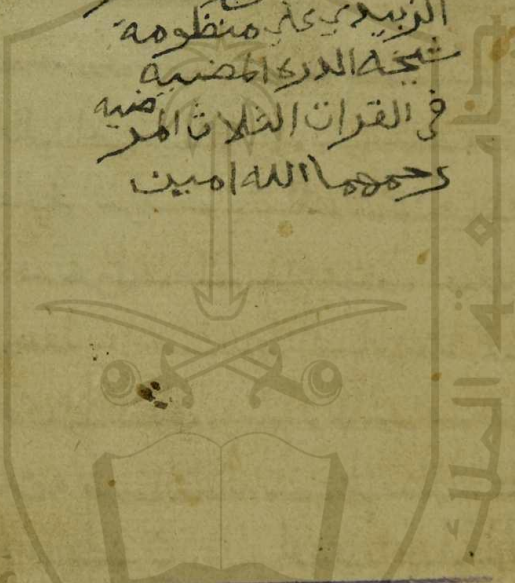 الزبيدي علي منظومة
شيخه الدره المضيه
في القرات الثلاث المر
ضيه
رحمهما الله امين